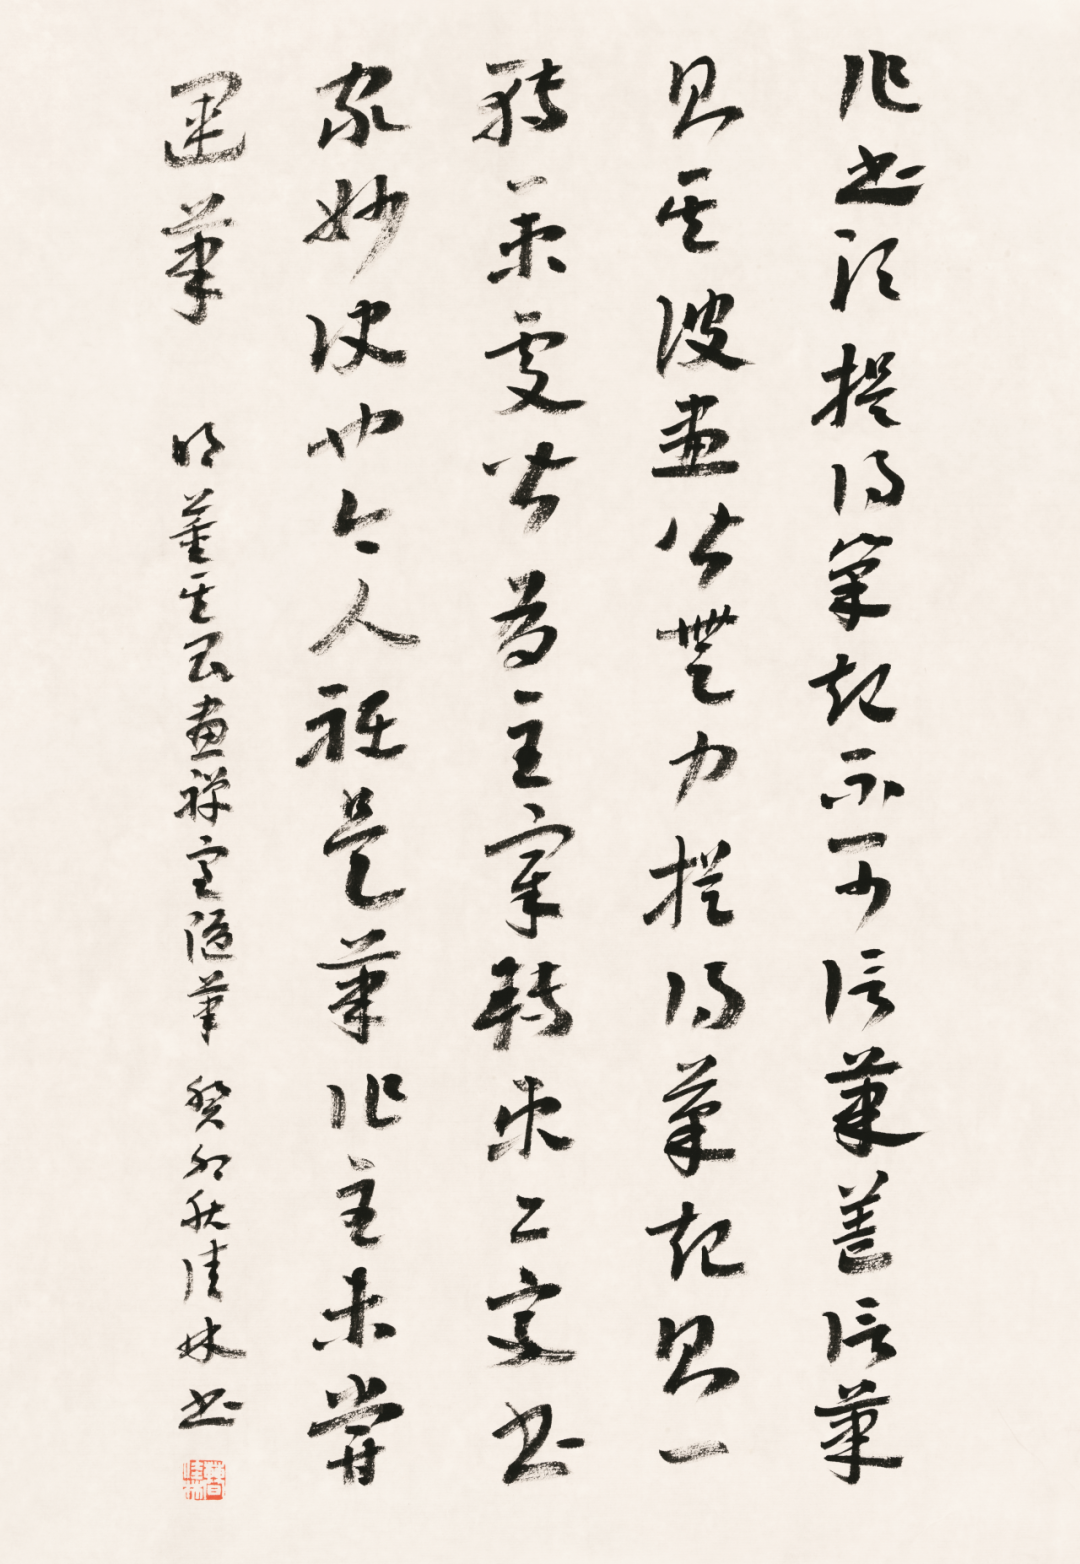 作書須提得筆起不可信筆蓋信筆
則其波畫皆無力提得筆起則一
轉一束處皆有主宰轉束二字書
家妙訣也今人祗是筆作主未嘗
運筆 明董其昌畫禪室隨筆 癸卯秋佳林書